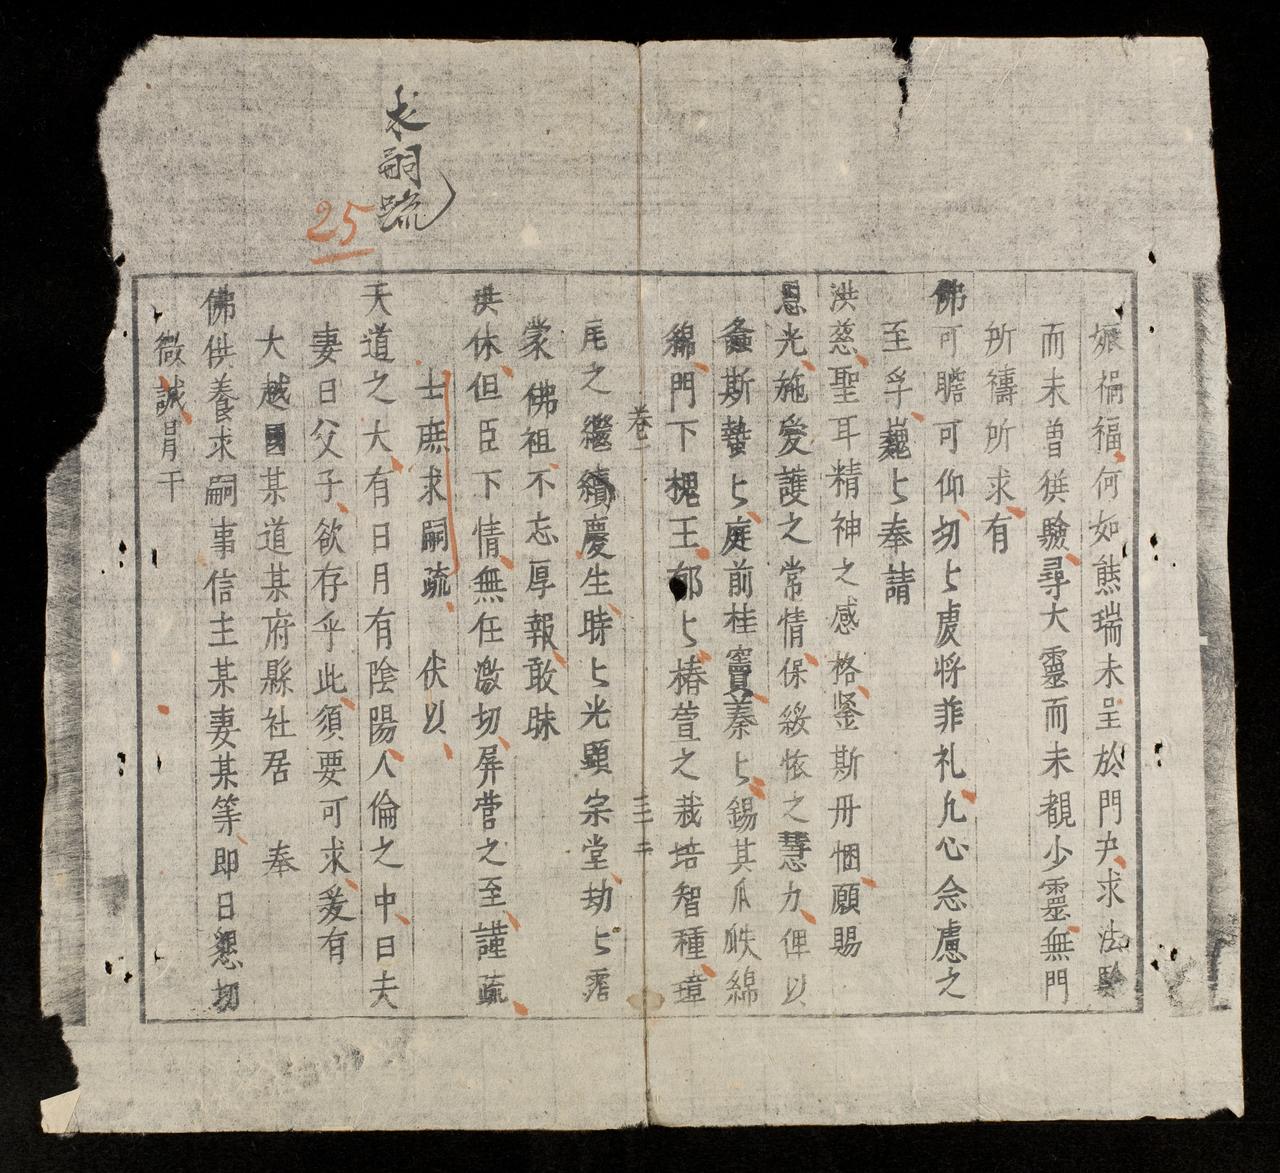 求嗣疏
25
娠禍福何如熊瑞未呈於門户求法驗
而未曽获驗尋大靈而未覩少靈無門
所禱所求有
佛可瞻可仰切々虔将菲礼凢心念慮之
至孚巍々奉請
洪慈聖耳精神之感格鉴斯丹悃願賜
恩光施愛護之常情保绥怀之慧力俾以
螽斯蟄々庭前桂竇蓁々錫其瓜瓞綿
綿門下槐王郁々椿萱之栽培智種璋
瓦之繼續慶生時々光顕宗堂劫々霑
蒙佛祖不忘厚報敢昧
洪休但臣下情無任激切屏营之至謹疏
士庶求嗣疏 伏以
天道之大有日月有陰陽人倫之中曰夫
妻曰父子欲存乎此須要可求爰有
大越國某道某府縣社居 奉
佛供養求嗣事信主某妻某等即日懇切
微誠冐干
卷一
三十二